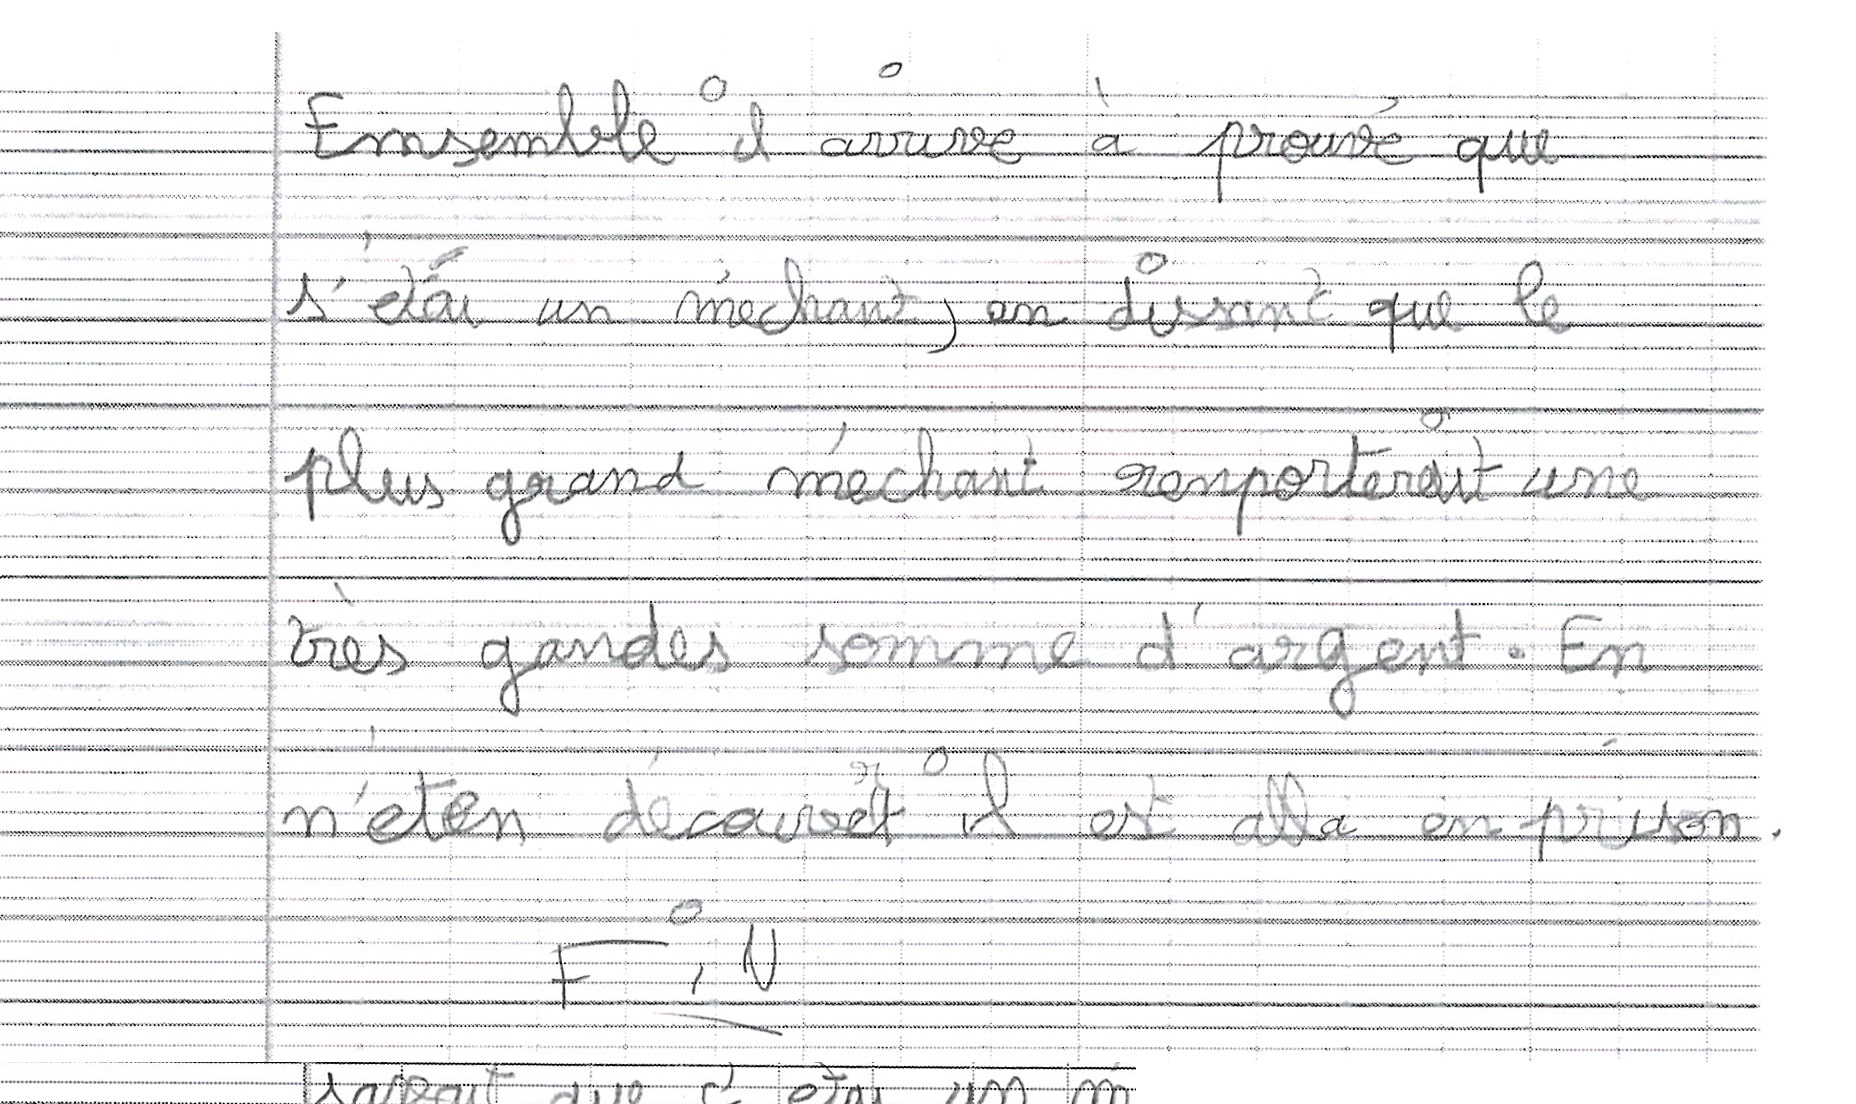 Ensemble il arrive à prouvé que
s'étai un méchant, en disant que le
plus grand méchant remporterait une
très gandes somme d'argent. En
n'étên décourvét il est alla en prison.
FiN
que c' etai un m